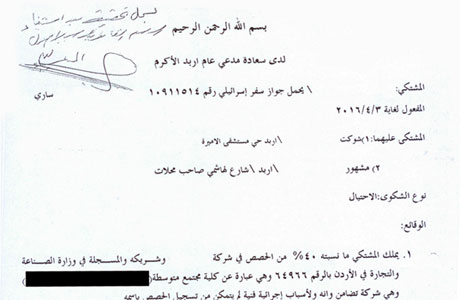 بسم الله الرحمن الرحيم
لدى سعادة مدعي عام اربد الأكرم
المشتكي: \ يحمل جواز سفر إسرائيلي رقم ١٠٩١١٥١٤ ساري
المفعول لغاية ٢٠١٦/٤/٣
المشتكى عليهما: ١) شوكت \ اربد حي مستشفى الاميرة
٢) مشهور \ اربد \ شارع هاشمي صاحب محلات
نوع الشكوى: الاحتيال
الوقائع:
١. يملك المشتكي ما نسبته ٤٠% من الحصص في شركة وشريكه والمسجلة في وزارة الصناعة
والتجارة في الأردن بالرقم ٦٤٩٦٦ وهي عبارة عن كلية مجتمع متوسطة (
وهي شركة تضامن وانه ولأسباب إجرائية فنية لم يتمكن من تسجيل الحصص باسمه